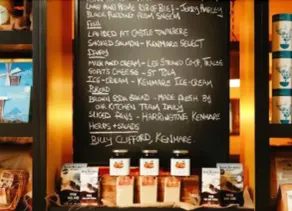 LONG BONE RIB OF BEEF - JERRY MARLEY
BLACK PUDDING FROM SNEEM
FISH
LANDED AT CASTLETOWNBERE
SMOKED SALMON - KENMARE SELECT
DAIRY
MILK AND CREAM - LEE STRAND COOP, TRALEE
GOATS CHEESE - ST TOLA
ICE-CREAM - KENMARE ICE-CREAM
BREAD
BROWN SODA BREAD - MADE FRESH BY
OUR KITCHEN TEAM DAILY
SLICED PANS - HARRINGTONS KENMARE
HERBS + SALADS
BILLY CLIFFORD, KENMARE